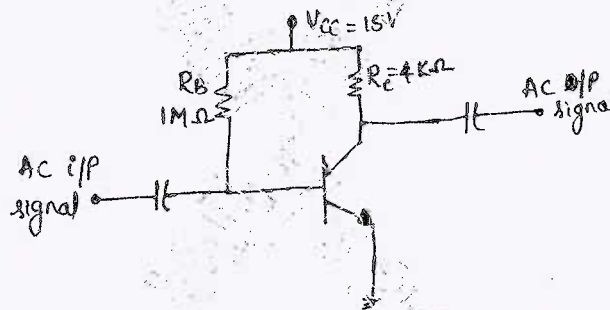 VCC = 15V
RB
1MΩ
RC = 4KΩ
AC O/P
signal
AC i/P
signal